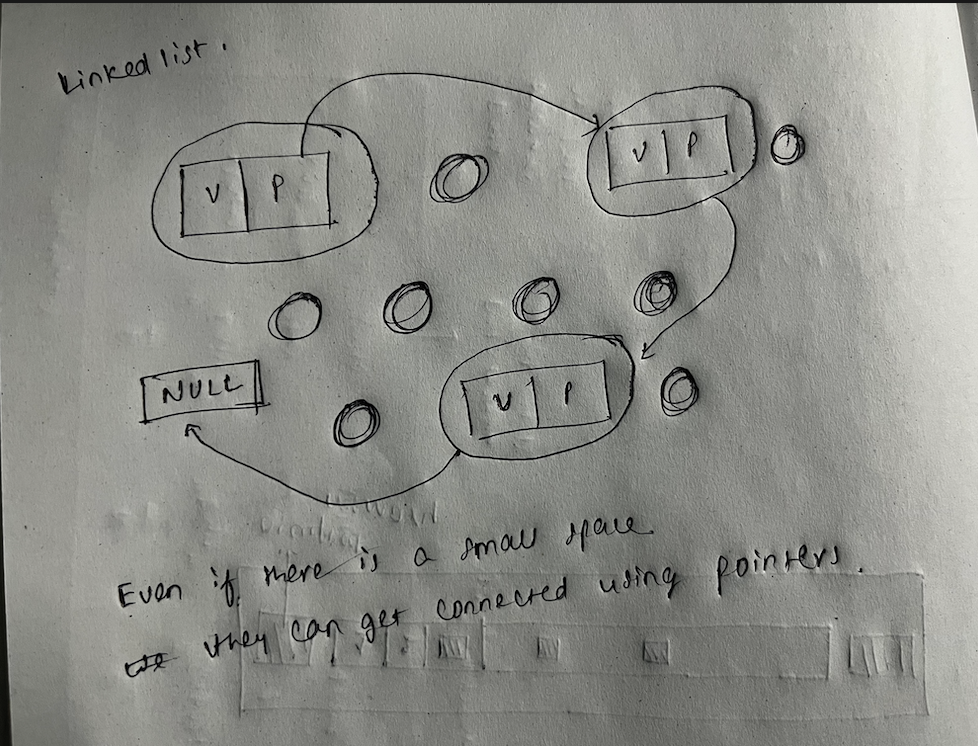 Linked list.
V P
V P
NULL
V P
Even if there is a small space
they can get connected using pointers.